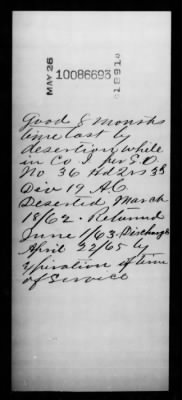 MAY 26
10086693
1891
Good 8 months
time lost by
desertion, while
in Co I per S.O.
No 36 Hd 2rs 3d
Div 19 A.C.
Deserted March
18/62. Returned
June 1/63. Discharged
April 22/65 by
expiration of time
of service